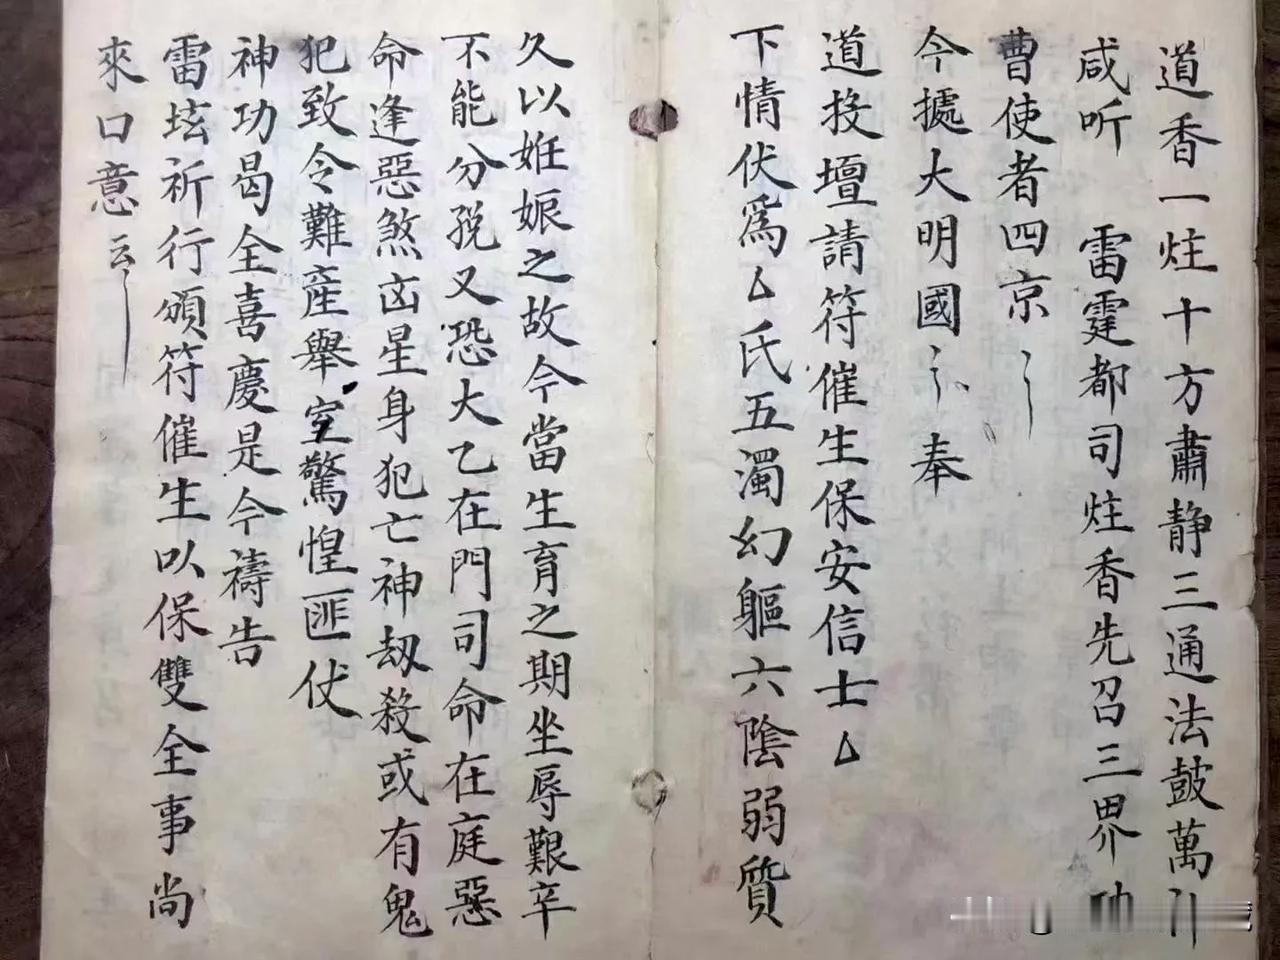 道香一炷十方肅静三通法鼓萬
咸听　雷霆都司炷香先召三界功
曹使者四京
今㨿大明國　奉
道投壇請符催生保安信士厶
下情伏爲厶氏五濁幻軀六陰弱質
久以妊娠之故今當生育之期坐辱艱辛
不能分娩又恐大乙在門司命在庭惡
命逢惡煞凶星身犯亡神刼殺或有鬼
犯致令難產舉室驚惶匪仗
神功曷全喜慶是今禱告
雷坛祈行頒符催生以保雙全事尚
來口意云